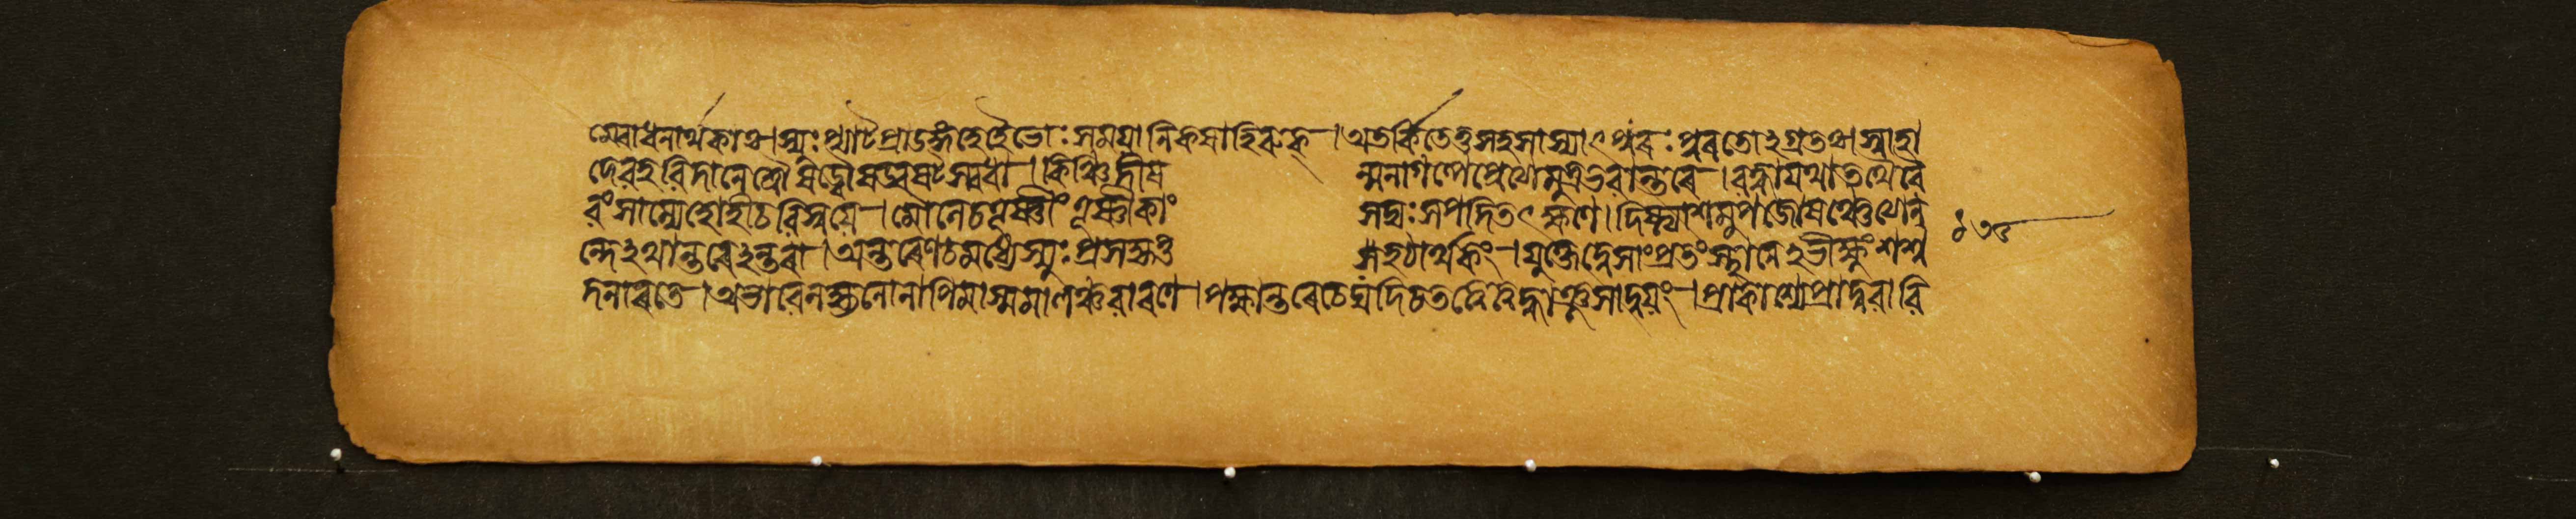 ম্বোধনাৰ্থকাঃ। স্যুঃ প্যাট্ পাডঙ্গ হে হৈ ভোঃ সময়া নিকষা হিৰুক্ । অতৰ্কিতে তু সহসা স্যাৎ পুৰঃ পুৰতোঽগ্ৰতঃ। স্বাহা
দেবহবিৰ্দানে শ্ৰৌষড্বৌষড্বষট্ স্বধা । কিঞ্চিদীষ ন্মনাগল্পে প্ৰেত্যামুত্ৰ ভবান্তৰে । ব বা যথা তথেবৈ
বং সাম্যেহো হী চ বিস্ময়ে । মৌনে চ তূষ্ণীং তূষ্ণীকাং সদ্যঃ সপদি তৎক্ষণে । দিষ্ট্যা শমুপজোষঞ্চেত্যান
ন্দেঽথান্তৰেঽন্তৰা । অন্তৰেণ চ মধ্যে স্যুঃ প্ৰসহ্য তু হঠাৰ্থকং । যুক্তে দ্বে সাংপ্ৰতং স্থানেঽভীক্ষ্ণং শশ্ব
দনাৰতে । অভাবে নহ্য নো নাপি মাস্ম মালঞ্চ বাৰণে । পক্ষান্তৰে চেদ্যদি চ তত্ত্বে ত্বদ্ধাঞ্জসা দ্বয়ং । প্ৰাকাশ্যে প্ৰাদুৰাবি